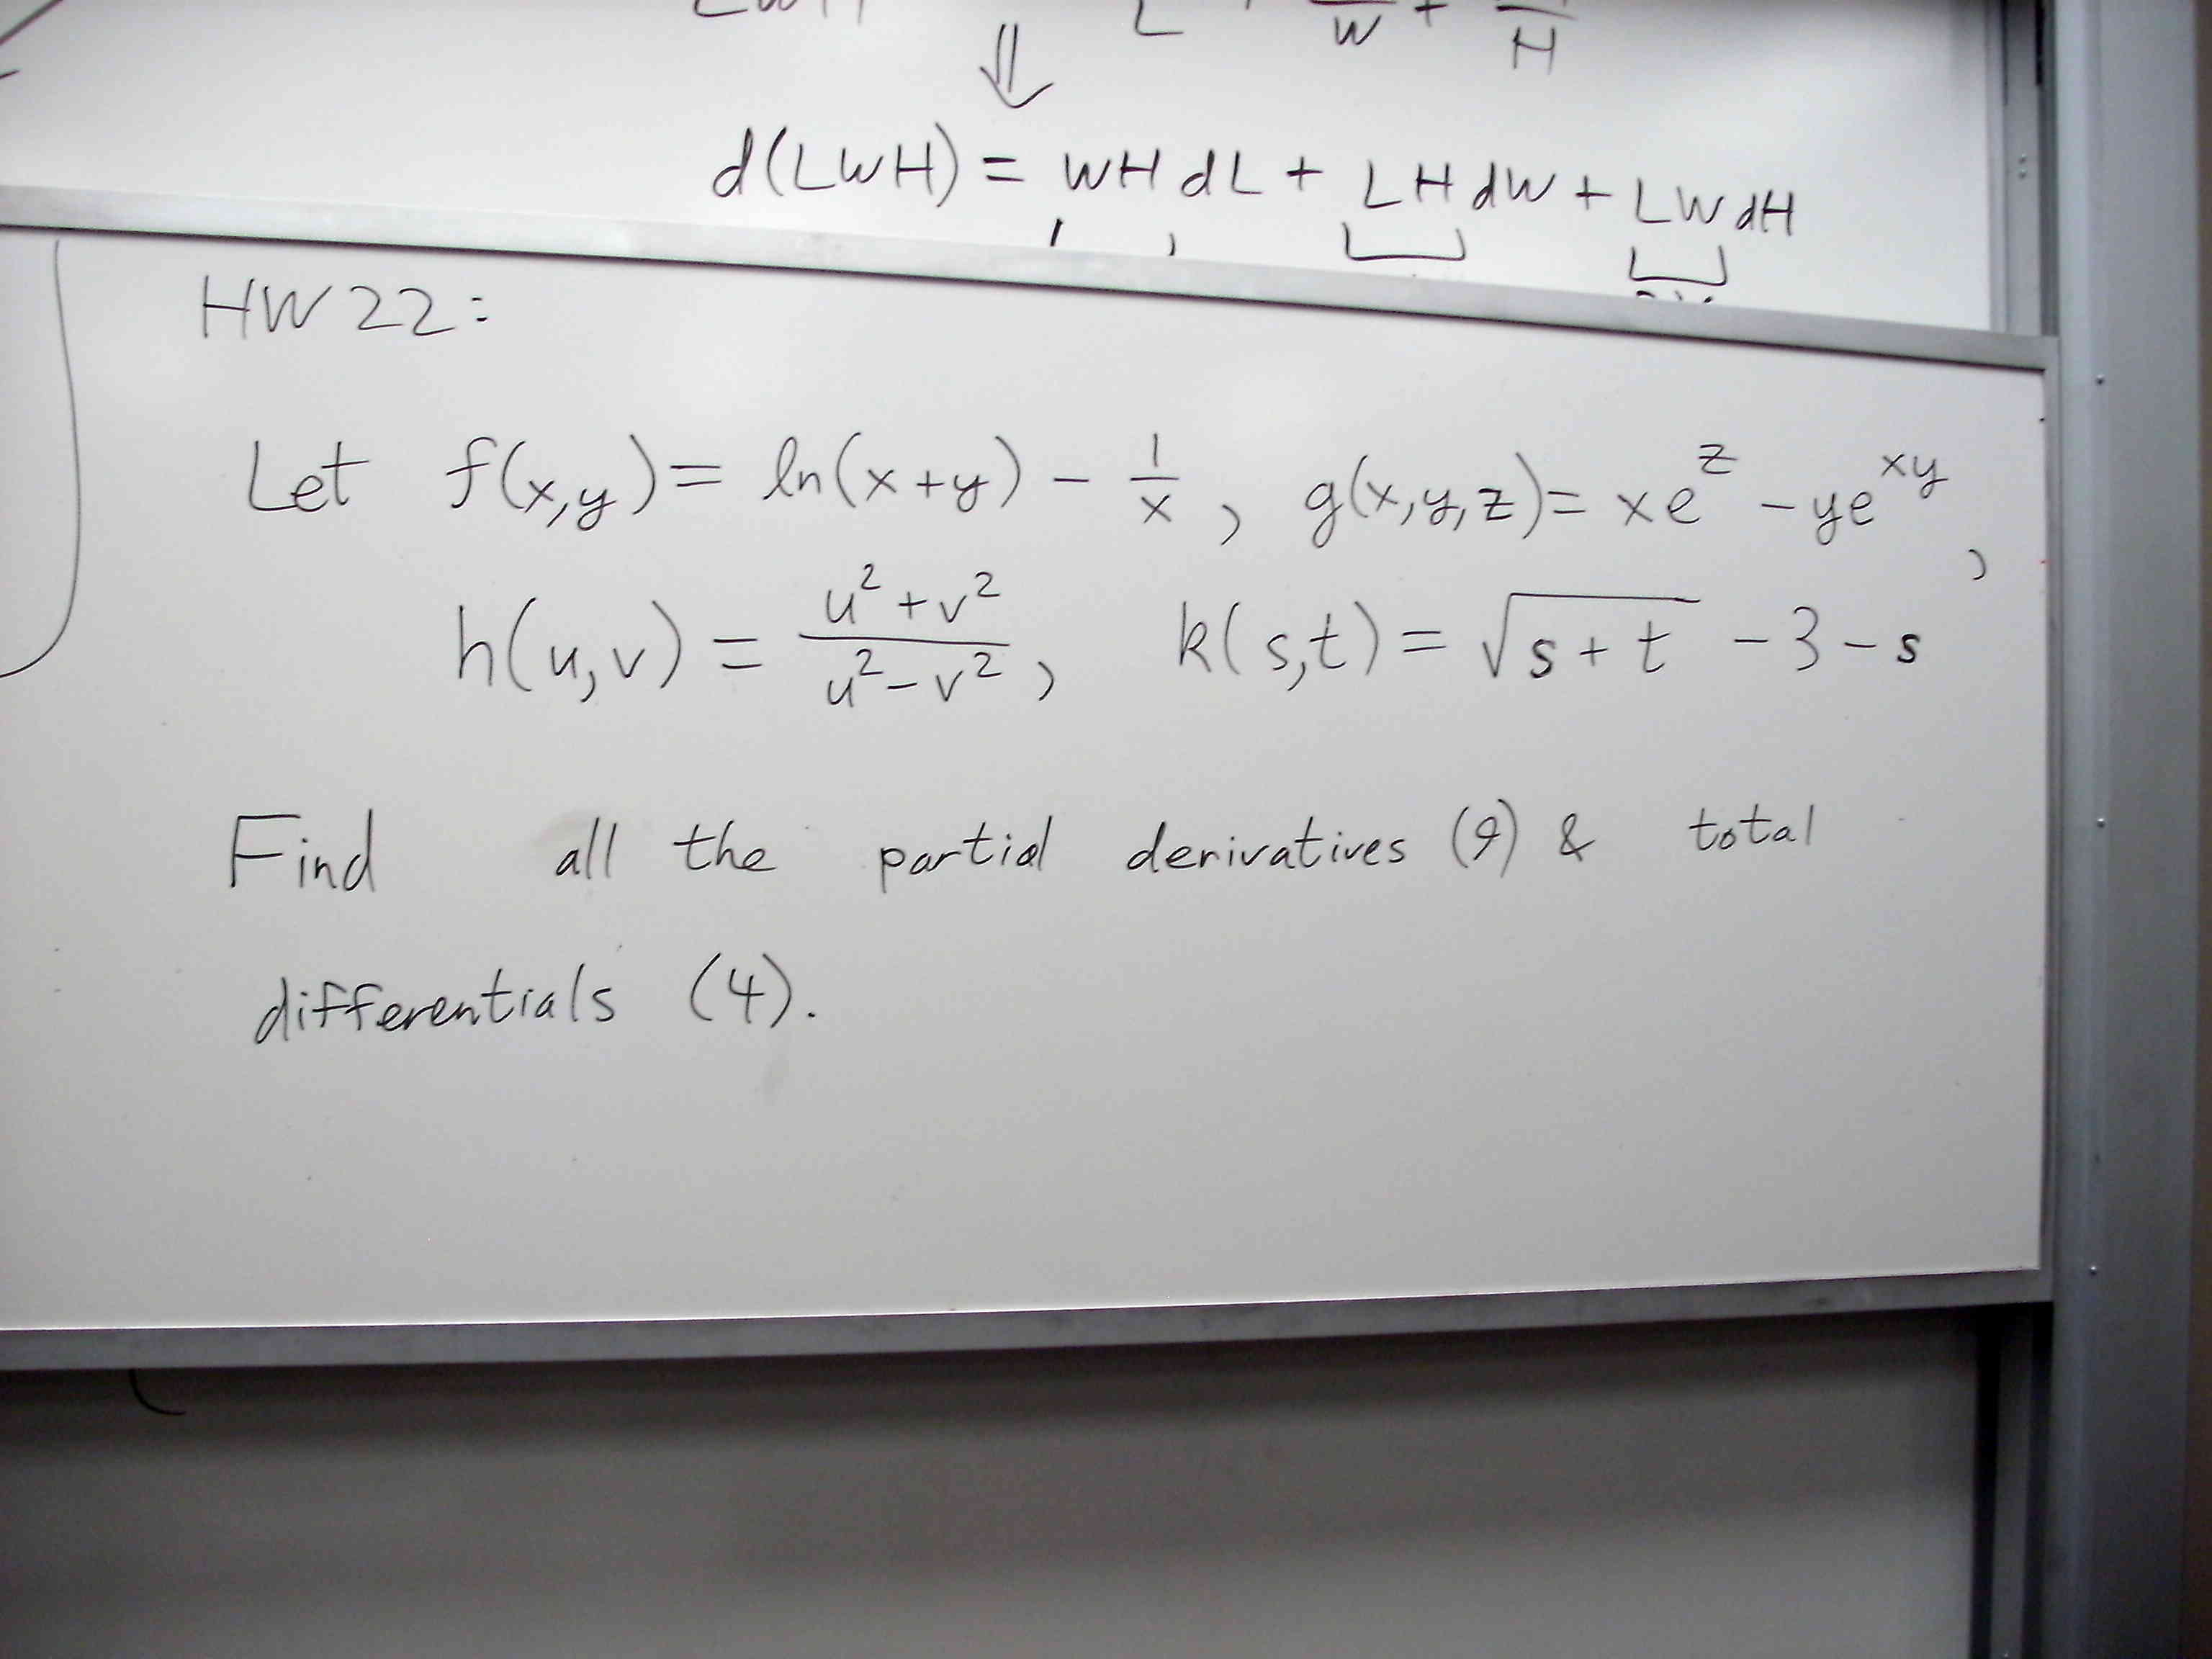 ⇓
d(LWH) = WH dL + LH dW + LW dH
HW 22:
Let f(x,y) = ln(x+y) - 1/x, g(x,y,z) = xe^z - ye^xy,
h(u,v) = (u²+v²)/(u²-v²), k(s,t) = √(s+t) - 3 - s
Find all the partial derivatives (9) & total
differentials (4).